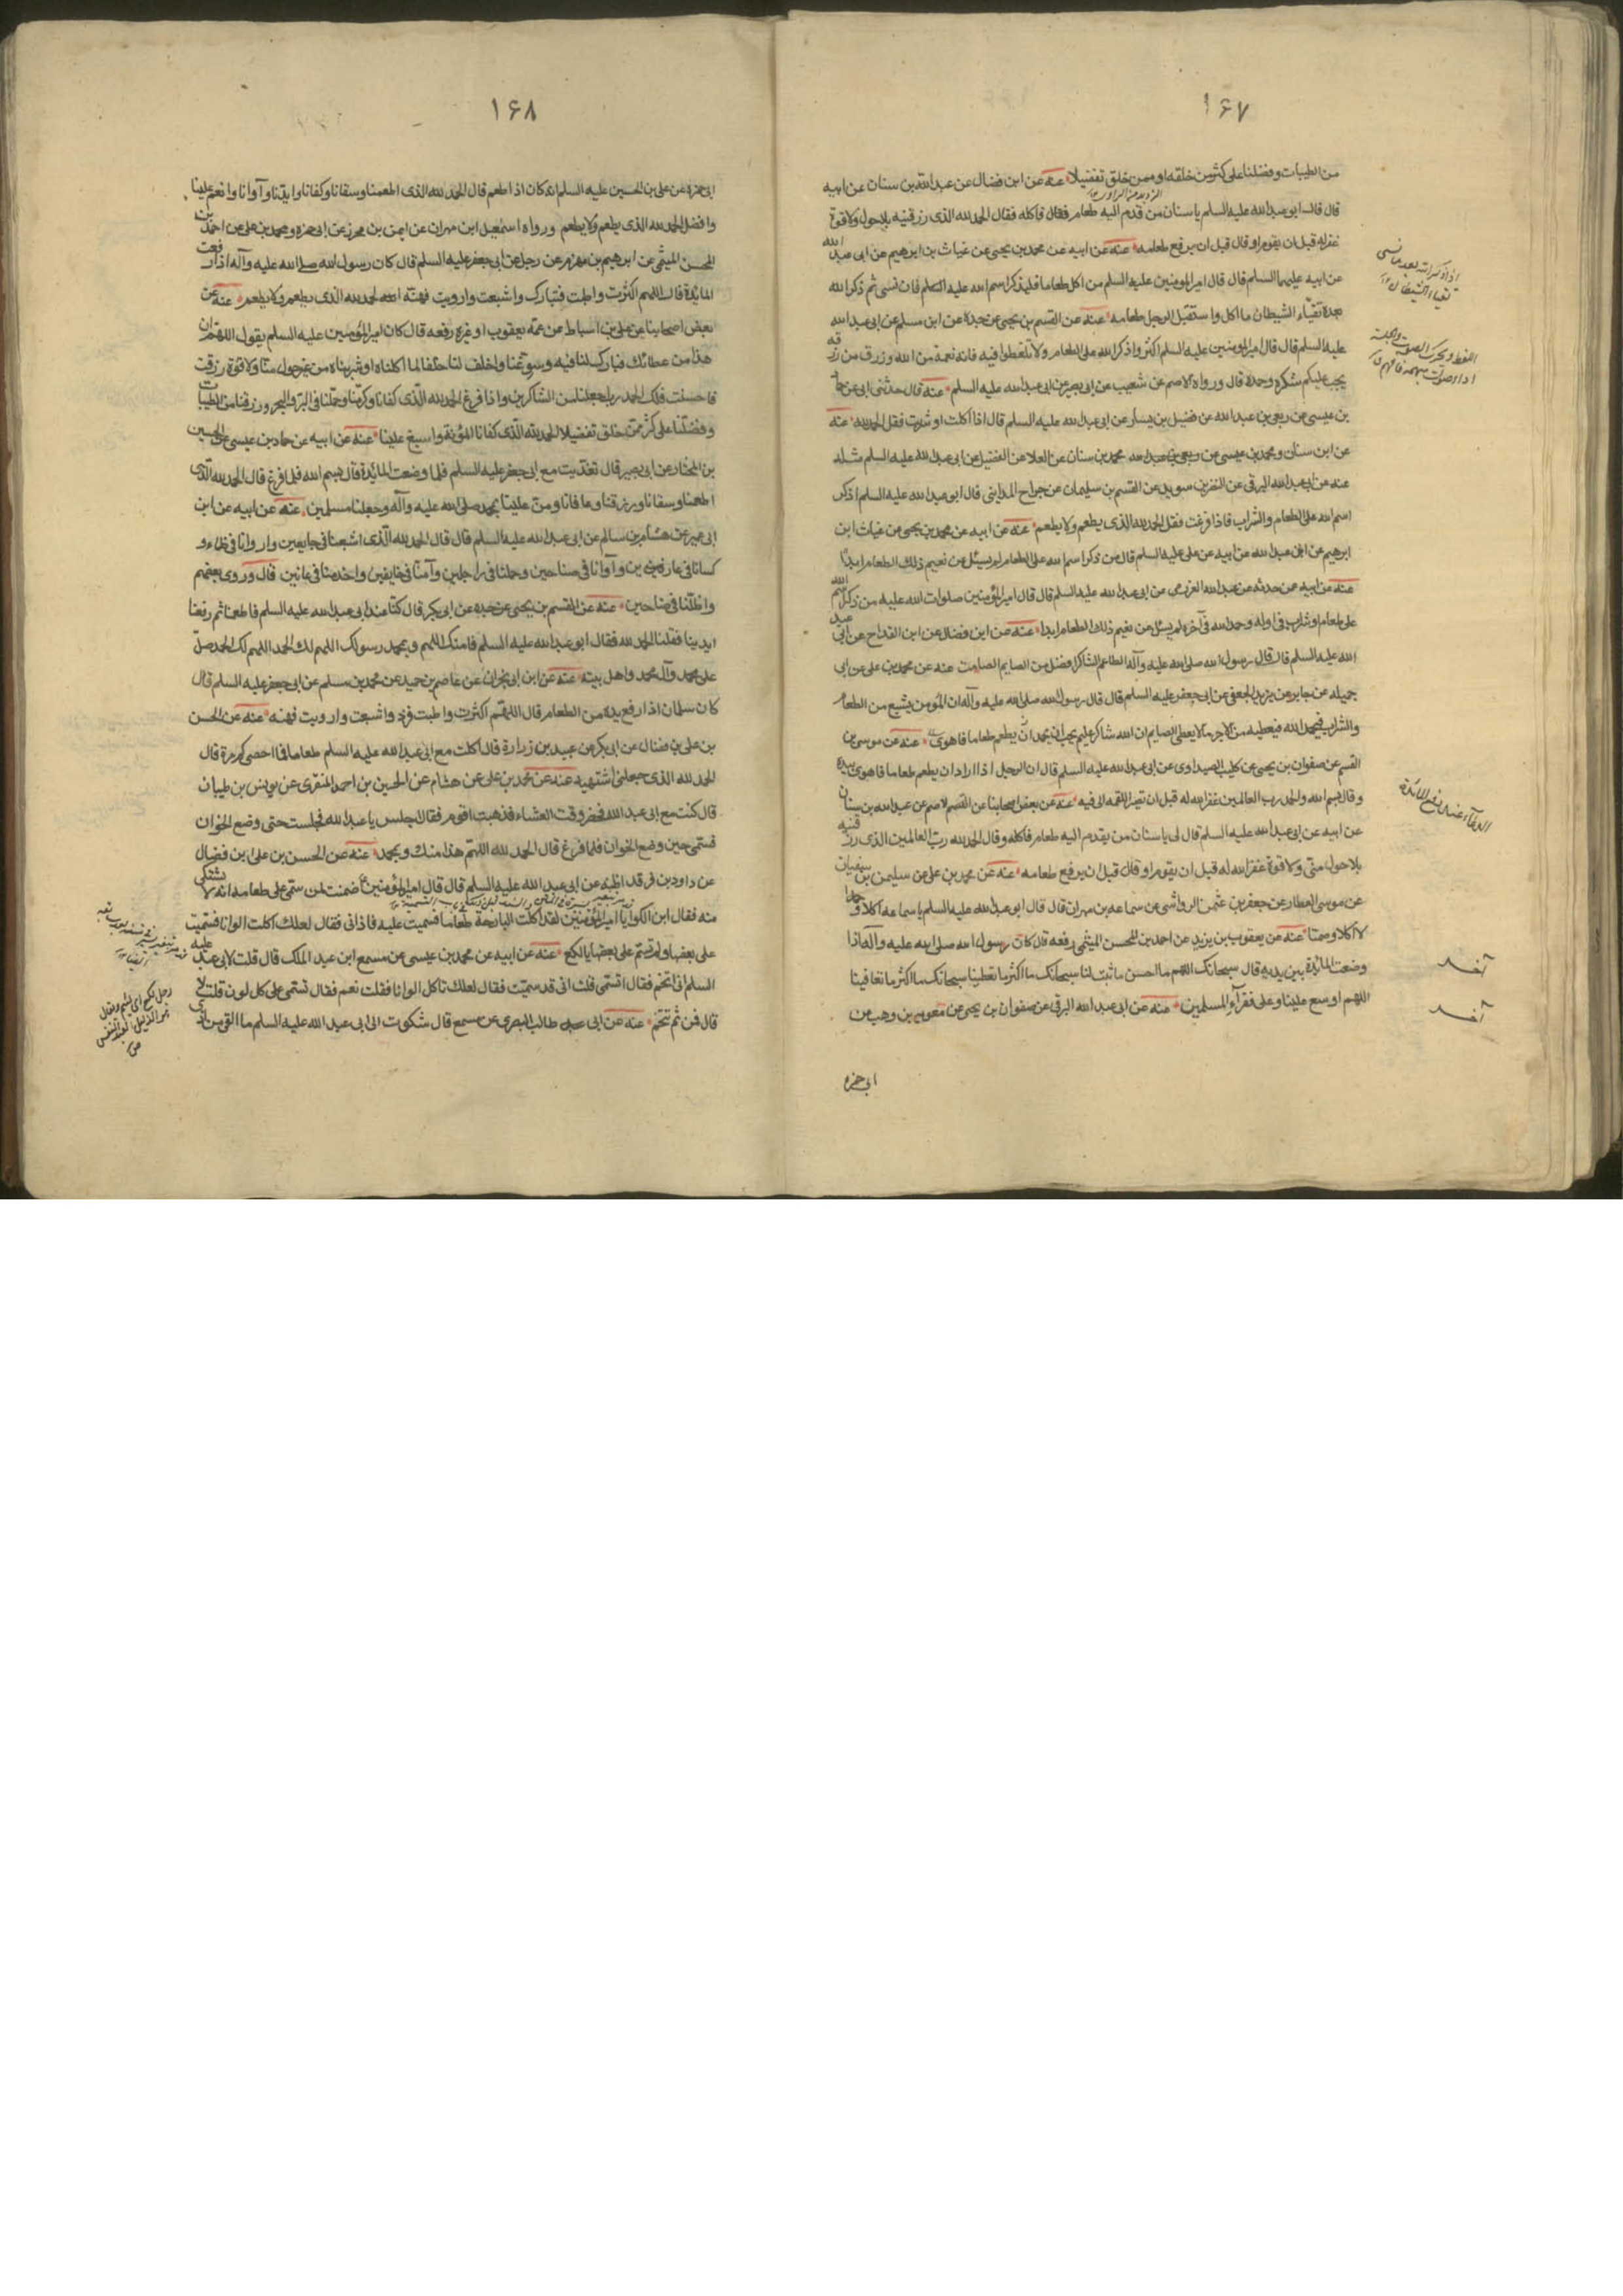 ۱۶۷
من الطیبات وفضلنا علی کثیر من خلقه او ممن خلق تفضیلا عنه عن ابن فضال عن عبدالله بن سنان عن ابیه
قال قال ابو عبدالله علیه السلم یا سنان من قدم الیه طعام فقال فاکله فقال الحمدلله الذی رزقنیه بلاحول ولاقوة
غفرله قبل ان یقوم او قال قبل ان یرفع طعامه عنه عن ابیه عن محمد بن یحیی عن غیاث بن ابرهیم عن ابی عبدالله
عن ابیه علیهما السلم قال قال امیرالمومنین علیه السلم من اکل طعاما فلیذکر اسم الله علیه فان نسی ثم ذکر الله
بعده تقیّاء الشیطان ما اکل واستقبل الرجل طعامه عنه عن القسم بن یحیی عن جده عن ابن مسلم عن ابی عبدالله
علیه السلم قال قال امیرالمومنین علیه السلم اکثروا ذکر الله علی الطعام ولا تلغطوا فیه فانه نعمة من الله ورزق من رزقه
یجب علیکم شکره وحمده قال ورواه الاصم عن شعیب عن ابی بصیر عن ابی عبدالله علیه السلم عنه قال حدثنی ابی عن حماد
بن عیسی عن ربعی بن عبدالله عن فضیل بن یسار عن ابی عبدالله علیه السلم قال اذا اکلت او شربت فقل الحمدلله عنه
عن ابن سنان ومحمد بن عیسی عن ربعی بن عبدالله محمد بن سنان عن العلا عن الفضیل عن ابی عبدالله علیه السلم مثله
عنه عن ابی عبدالله البرقی عن النضر بن سوید عن القسم بن سلیمان عن جراح المداینی قال ابو عبدالله علیه السلم اذکر
اسم الله علی الطعام والشراب فاذا فرغت فقل الحمدلله الذی یطعم ولا یطعم عنه عن ابیه عن محمد بن یحیی عن غیاث ابن
ابرهیم عن ابی عبدالله عن ابیه عن علی علیه السلم قال من ذکر اسم الله علی الطعام لم یسئل عن نعیم ذلک الطعام ابدا
عنه عن ابیه عمن حدثه عن عبدالله العزرمی عن ابی عبدالله علیه السلم قال قال امیرالمؤمنین صلوات الله علیه من ذکر اسم الله
علی طعام او شراب فی اوله وحمد الله فی آخره لم یسئل عن نعیم ذلک الطعام ابدا عنه عن ابن فضال عن ابن القداح عن ابی عبد
الله علیه السلم قال قال رسول الله صلی الله علیه وآله الطاعم الشاکر افضل من الصایم الصامت عنه عن محمد بن علی عن ابی
جمیله عن جابر بن یزید الجعفی عن ابی جعفر علیه السلم قال قال رسول الله صلی الله علیه وآله ان المؤمن یشبع من الطعام
والشراب فیحمد الله فیعطیه من الاجر ما لا یعطی الصایم ان الله شاکر علیم یحب ان یحمد عنه عن موسی بن
القسم عن صفوان بن یحیی عن کلیب الصیداوی عن ابی عبدالله علیه السلم قال ان الرجل اذا اراد ان یطعم طعاما فاهوی بیده
وقال بسم الله والحمد رب العالمین غفر الله له قبل ان تصیر اللقمه الی فیه عنه عن بعض اصحابنا عن القسم الاصم عن عبدالله بن سنان
عن ابیه عن ابی عبدالله علیه السلم قال لی یا سنان من یقدم الیه طعام فاکله وقال الحمدلله رب العالمین الذی رزقنیه
بلا حول منّی ولا قوة غفر الله له قبل ان یقوم او قال قبل ان یرفع طعامه عنه عن محمد بن علی عن سلیمن بن سفیان
عن موسی العطار عن جعفر بن عثمن الرواشی عن سماعه بن مهران قال قال ابو عبدالله علیه السلم یا سماعه اکلا وحمدا
لا اکلا وصمتا عنه عن یعقوب بن یزید عن احمد بن المحسن المیثمی رفعه قال کان رسول الله صلی الله علیه وآله اذا
وضعت المائدة بین یدیه قال سبحانک اللهم ما احسن ما تبتلنا سبحانک ما اکثر ما تعطینا سبحانک ما اکثر ما تعافینا
اللهم اوسع علینا وعلی فقرآء المسلمین عنه عن ابی عبدالله البرقی عن صفوان بن یحیی عن معویه بن وهب عن
ابی حمزه
الدعآء عند رفع المائدة
آخر
آخر
۱۶۸
ابی حمزه عن علی بن الحسین علیه السلم انه کان اذا طعم قال الحمد لله الذی اطعمنا وسقانا وکفانا وایدنا وآوانا وانعم علینا
وافضل الحمدلله الذی یطعم ولا یطعم ورواه اسمعیل ابن مهران عن ایمن بن محرز عن ابی حمزه ومحمد بن علی عن احمد بن
المحسن المیثمی عن ابرهیم بن مهزم عن رجل عن ابی جعفر علیه السلم قال کان رسول الله صلی الله علیه وآله اذا رفعت
المائدة قال اللهم اکثرت واطبت فبارک واشبعت وارویت فهنئه الحمد لله الذی یطعم ولا یطعم عنه عن
بعض اصحابنا عن علی بن اسباط عن عمه یعقوب او غیره رفعه قال کان امیرالمؤمنین علیه السلم یقول اللهم ان
هذا من عطائک فبارک لنا فیه وسوّغنا واخلف لنا خلفا لما اکلناه او شربناه من غیر حول منّا ولا قوة رزقت
فاحسنت فلک الحمد رب اجعلنا من الشاکرین واذا فرغ الحمدلله الّذی کفانا وکرمنا وحملنا فی البر والبحر ورزقنا من الطیبات
وفضلنا علی کثیر ممن خلق تفضیلا الحمدلله الذی کفانا المؤنة واسبغ علینا عنه عن ابیه عن حماد بن عیسی عن الحسین
بن المختار عن ابی بصیر قال تغدّیت مع ابی جعفر علیه السلم فلما وضعت المائدة قال بسم الله فلما فرغ قال الحمدلله الّذی
اطعمنا وسقانا ورزقنا وعافانا ومنّ علینا بمحمد صلی الله علیه وآله وجعلنا مسلمین عنه عن ابیه عن ابن
ابی عمیر عن هشام بن سالم عن ابی عبدالله علیه السلم قال قال الحمدلله الّذی اشبعنا فی جایعین واروانا فی ظماء و
کسانا فی عارین وآوانا فی ضاحین وحملنا فی راجلین وآمنّا فی خایفین واخدمنا فی عانین قال وروی بعضهم
واظلّنا فی ضاحین عنه عن القسم بن یحیی عن جده عن ابی بکر قال کنّا عند ابی عبدالله علیه السلم فاطعمنا ثم رفعنا
ایدینا فقلنا الحمدلله فقال ابو عبدالله علیه السلم هذا منک اللهم وبمحمد رسولک اللهم لک الحمد اللهم لک الحمد صل
علی محمد وآل محمد واهل بیته عنه عن ابن ابی نجران عن عاصم بن حمید عن محمد بن مسلم عن ابی جعفر علیه السلم قال
کان سلمان اذا رفع یده من الطعام قال اللهم اکثرت واطبت فزد واشبعت وارویت فهنه عنه عن الحسن
بن علی بن فضال عن ابی بکر عن عبید بن زرارة قال اکلت مع ابی عبدالله علیه السلم طعاما فما احصی کم مرة قال
الحمد لله الذی جعلنی اشتهیه عنه عن محمد بن علی عن هشام عن الحسین بن احمد المنقری عن یونس بن ظبیان
قال کنت مع ابی عبدالله فحضر وقت العشاء فذهبت اقوم فقال اجلس یا عبدالله فجلست حتی وضع الخوان
فسمّی حین وضع الخوان فلما فرغ قال الحمد لله اللهم هذا منک وبمحمد عنه عن الحسن بن علی بن فضال
عن داود بن فرقد عن ابی عبدالله علیه السلم قال قال امیرالمؤمنین ضمنت لمن سمّی علی طعامه انه لا یشتکی
منه فقال ابن الکوا یا امیر المؤمنین لقد اکلت البارحة طعاما فسمیت علیه فاذانی فقال لعلک اکلت الوانا فسمیت
علی بعضها ولم تسم علی بعضها یالکع عنه عن ابیه عن محمد بن عیسی عن مسمع ابن عبد الملک قال قلت لابی عبدالله علیه
السلم انی اتّخم فقال اتسمّی قلت انی قد سمّیت فقال لعلک تاکل الوانا فقلت نعم فقال تسمّی علی کل لون قلت لا
قال فمن ثم تتّخم عنه عن ابی طالب البصری عن مسمع قال شکوت الی ابی عبدالله علیه السلم ما القی من اذی